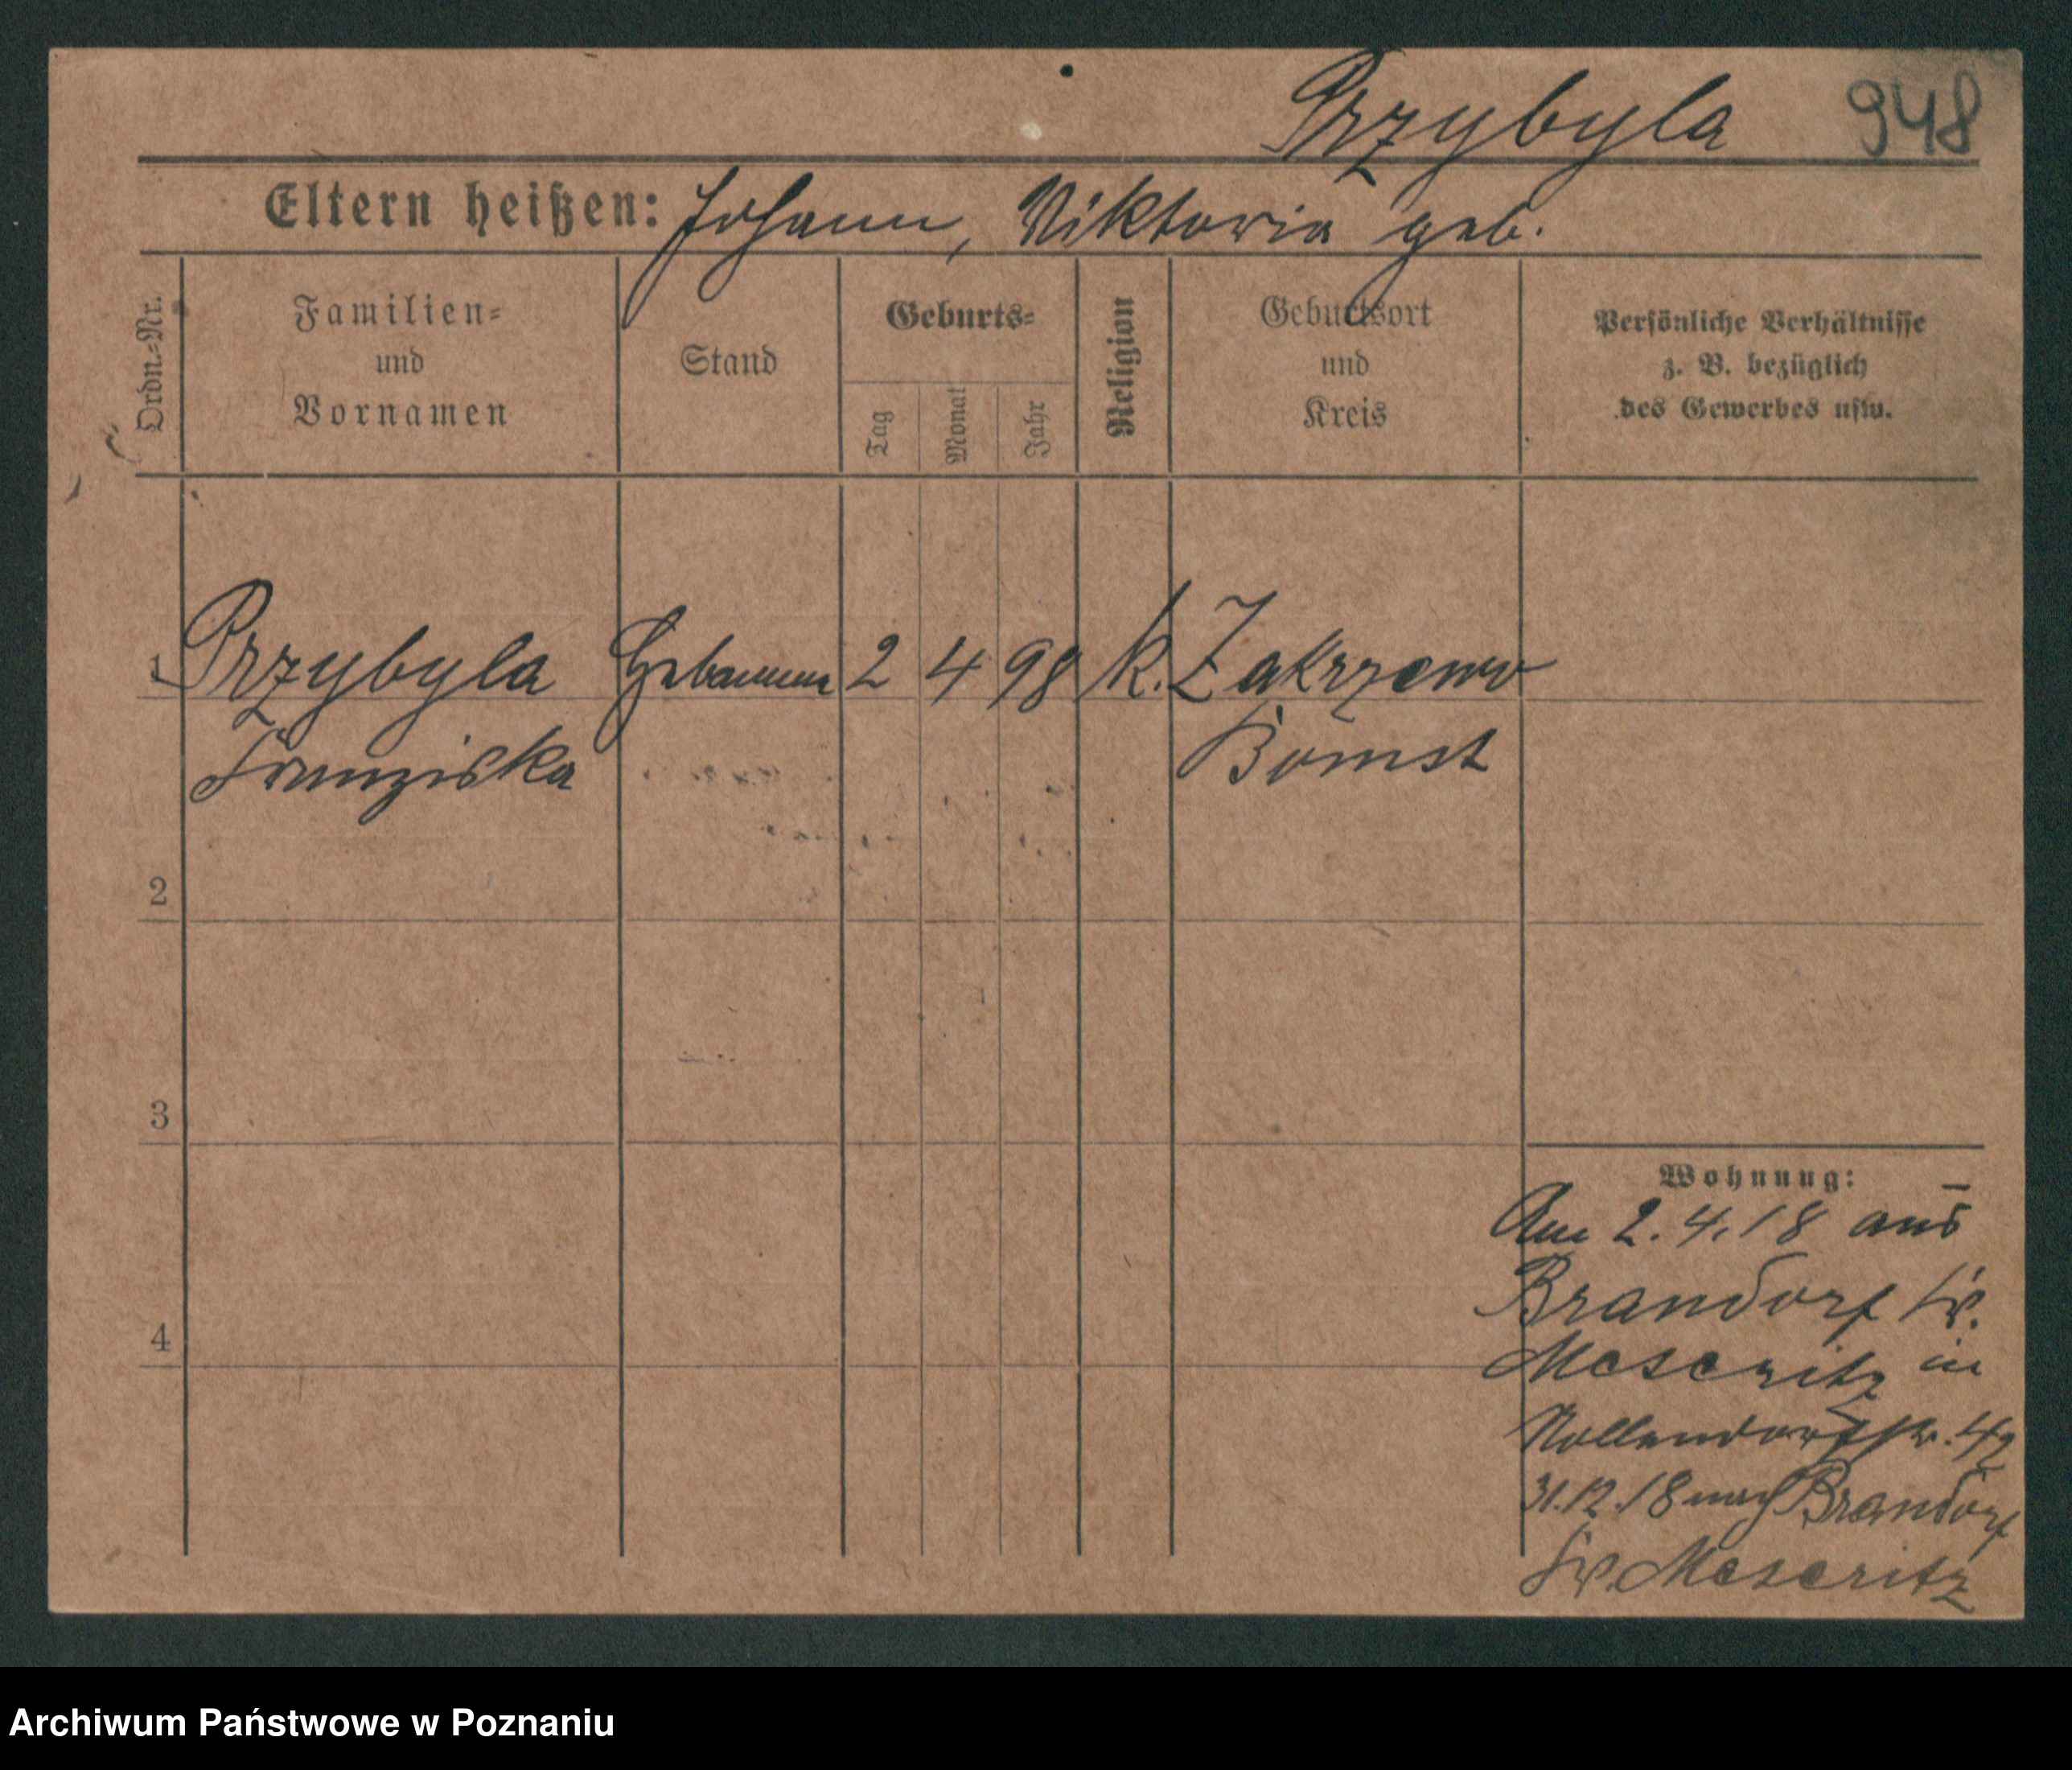 Przybyla 948
Eltern heißen: Johann, Viktoria geb.
Ordn.-Nr.
Familien-
und
Vornamen
Stand
Geburts-
Tag
Monat
Jahr
Religion
Geburtsort
und
Kreis
Persönliche Verhältnisse
z. B. bezüglich
des Gewerbes usw.
1 Przybyla Hebamme 2 4 98 k. Zakrzewo
Franziska Bomst
2
3
4
Wohnung:
Am 2.4.18 aus
Brandorf Kr.
Meseritz in
Nollendorfstr.
31.12.18 nach Brandorf
Kr. Meseritz
Archiwum Państwowe w Poznaniu